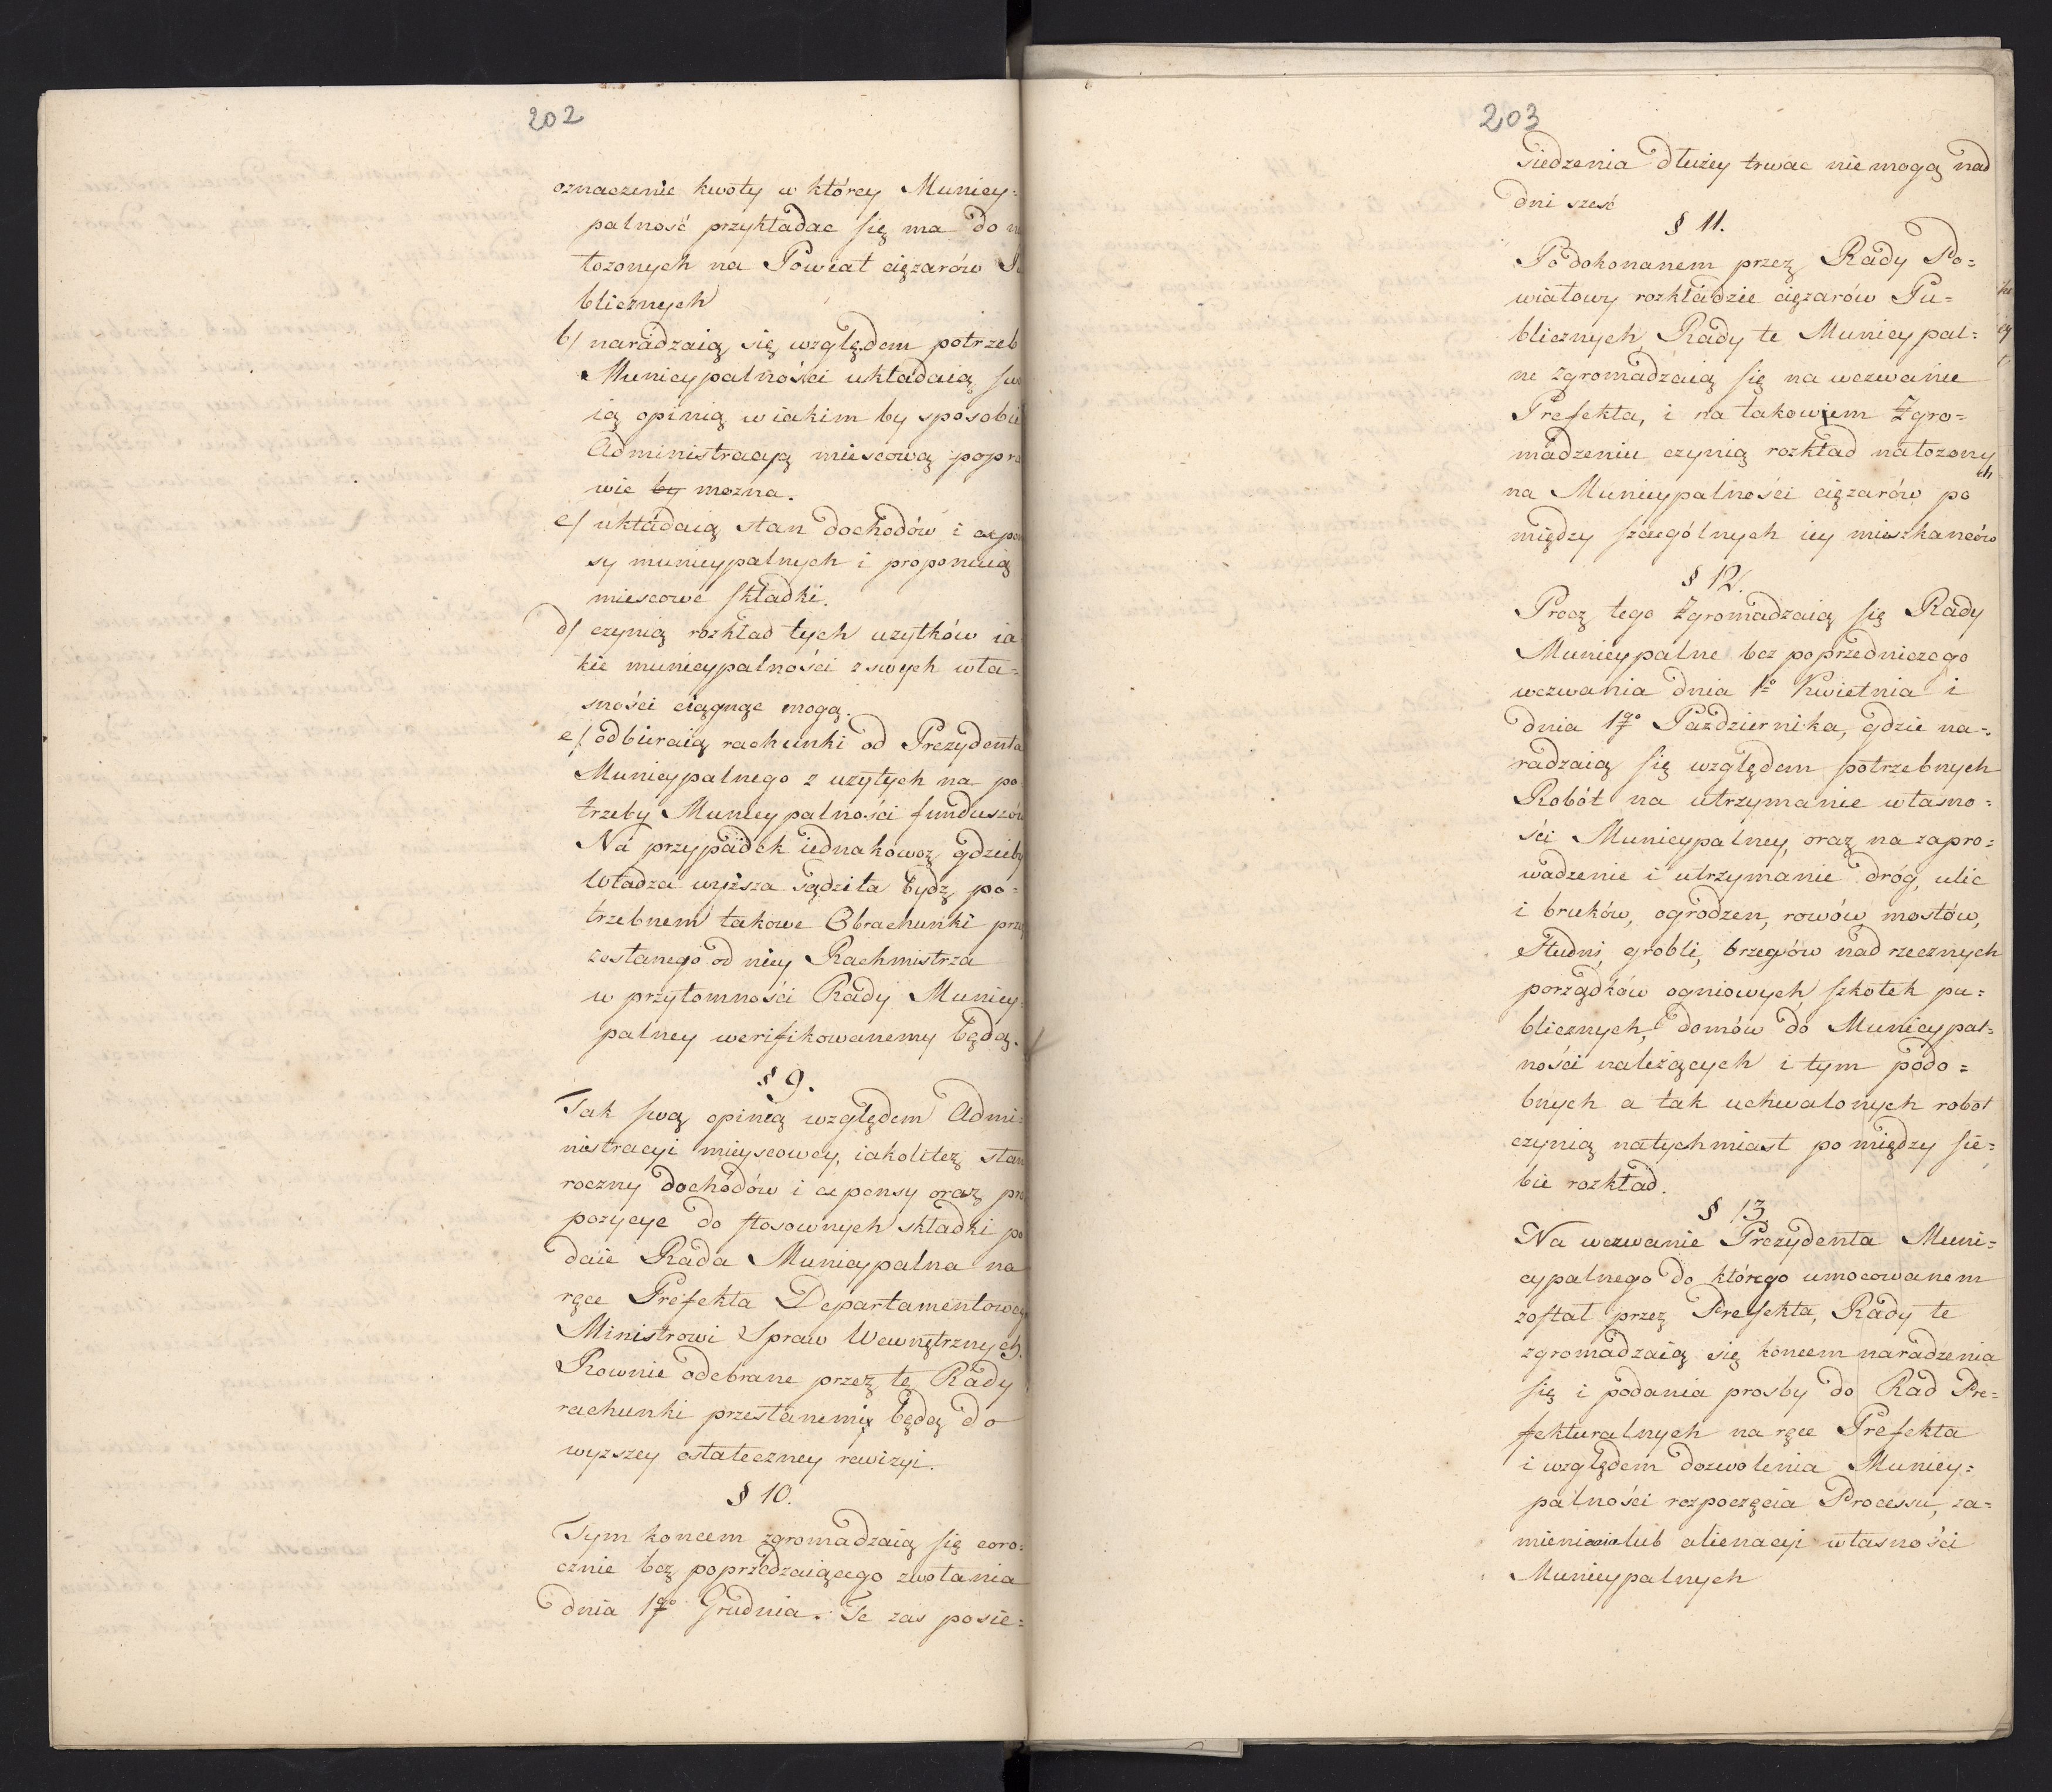 202
oznaczenie kwoty w którey Municy=
palność przykładac się ma do
łozonych na Powiat ciężarów
blicznych
b/ naradzaią się względem potrzeb
Municypalności układaią
ią opinią w iakim by sposobie
Administracyą miescową popra
wic by mozna.
c/ układaią stan dochodów i expen
sy municypalnych i proponuią
miescowe składki.
d/ czynią rozkład tych uzytków ia
kie municypalności z swych wła=
sności ciągnąc mogą.
e/ odbieraią rachunki od Prezydenta
Municypalnego z uzytych na po
trzeby Municypalności funduszów
Na przypadek iednakowoz gdzieby
Władza wyższa sądziła bydz po=
trzebnem takowe Obrachunki przez
zesłanego od niey Rachmistrza
w przytomności Rady Municy=
palney werifikowanemy będą.
§ 9.
Tak swą opinią względem Admi=
nistracyi mieyscowey, iakoliteż stan
roczny dochodów i expensy oraz pro
pozycye do stosownych składki po
daie Rada Municypalna na
ręce Prefekta Departamentowego
Ministrowi Spraw Wewnętrznych.
Rownie odebrane przez tę Rady
rachunki przesłanemi będą do
wyzszey ostateczney rewizyi.
§ 10.
Tym koncem zgromadzaią się coro=
cznie bez poprzedzaiącego zwołania
dnia 1go Grudnia. Te zas posie=
203
siedzenia dłużey trwac nie mogą nad
dni szesć
§ 11.
Po dokonanem przez Rady Po=
wiatowy rozkładzie ciężarów Pu=
blicznych Rady te Municypal=
ne zgromadzaią się na wezwanie
Prefekta, i na takowem Zgro=
madzeniu czynią rozkład nałozony
ch
na Municypalności ciężarów po
między szczególnych iey mieszkanców
§ 12.
Procz tego Zgromadzaią się Rady
Municypalne bez poprzedniczego
wezwania dnia 1o Kwietnia i
dnia 1go Pazdziernika, gdzie na=
radzaią się względem potrzebnych
Robót na utrzymanie własno=
ści Municypalney, oraz na zapro=
wadzenie i utrzymanie dróg, ulic
i bruków, ogrodzen, rowów mostów,
Studni, grobli, brzegów nad rzecznych
porządków ogniowych, szkołek pu=
blicznych, domów do Municypal=
ności należących i tym podo=
bnych a tak uchwalonych robot
czynią natychmiast po między sie=
bie rozkład.
§ 13
Na wezwanie Prezydenta Muni=
cypalnego do którego umocowanem
został przez Prefekta, Rady te
zgromadzaią się koncem naradzenia
się i podania prosby do Rad Pre=
fekturalnych na ręce Prefekta
i względem dozwolenia Municy=
palności rozpoczęcia Processu, za=
mieniania lub alienacyi własności
Municypalnych